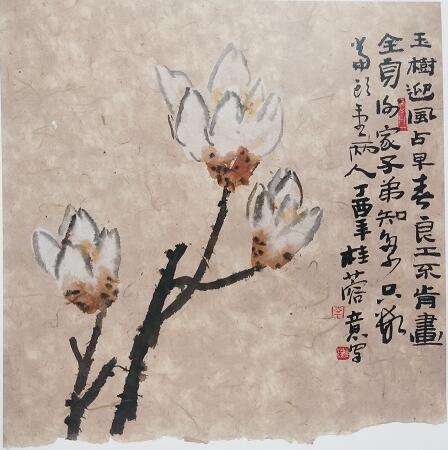 玉樹迎風占早春良工不肯畫
全身谢家子弟知多少只數
當頭兩人丁酉年桂蓉意写